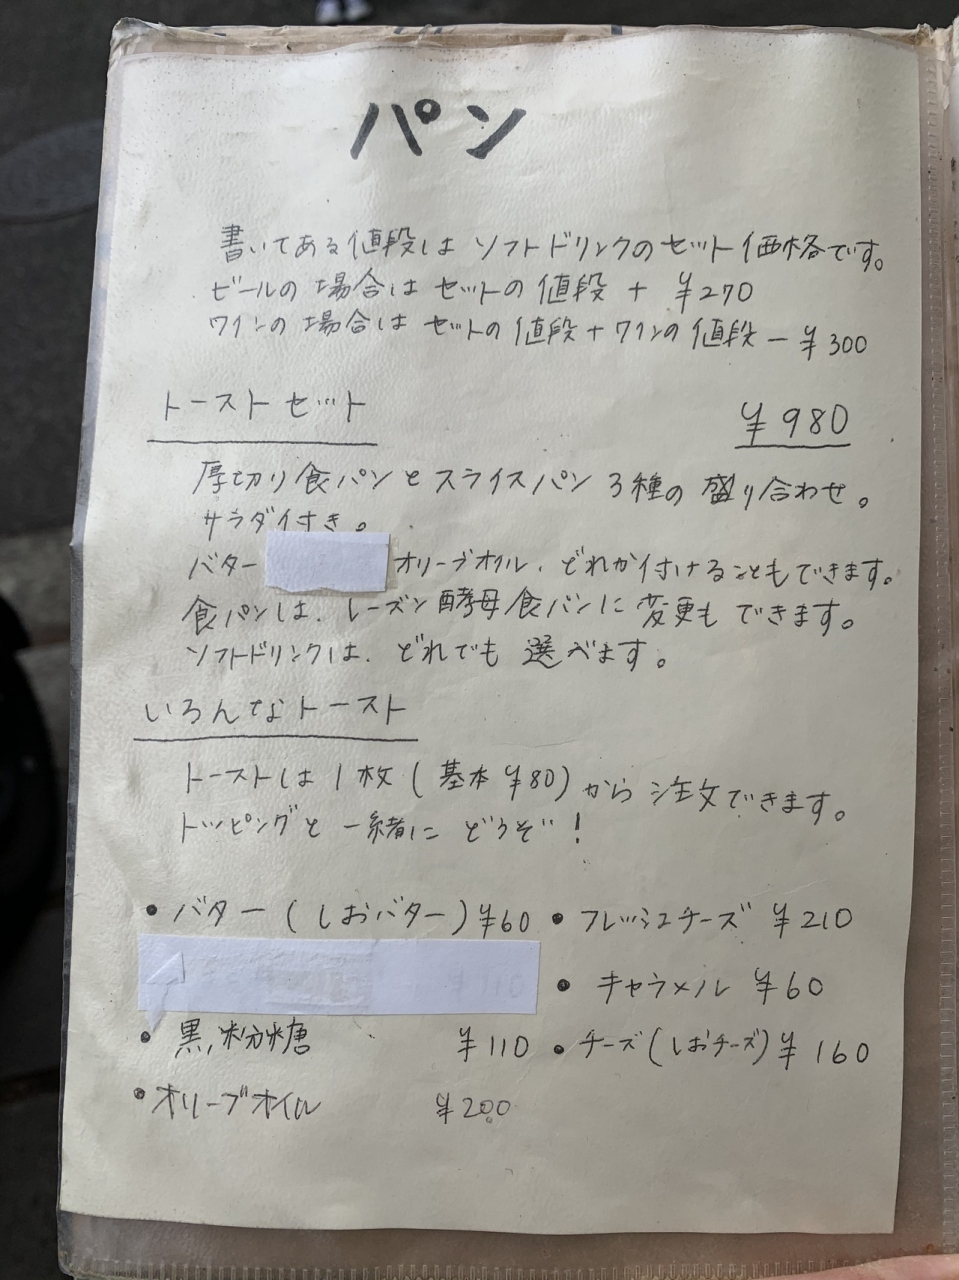 パン
書いてある値段は ソフトドリンクのセット価格です。
ビールの場合は セットの値段 + ¥270
ワインの場合は セットの値段+ワインの値段-¥300
トースト セット ¥980
厚切り食パンと スライスパン 3種の盛り合わせ。
サラダ付き。
バター オリーブオイル、どれか付けることもできます。
食パンは、レーズン酵母食パンに変更もできます。
ソフトドリンクは、どれでも選べます。
いろんなトースト
トーストは1枚(基本¥80)から注文できます。
トッピングと一緒にどうぞ!
・バター(しおバター)¥60 ・フレッシュチーズ ¥210
・キャラメル ¥60
・黒、粉糖 ¥110 ・チーズ(しおチーズ)¥160
・オリーブオイル ¥200